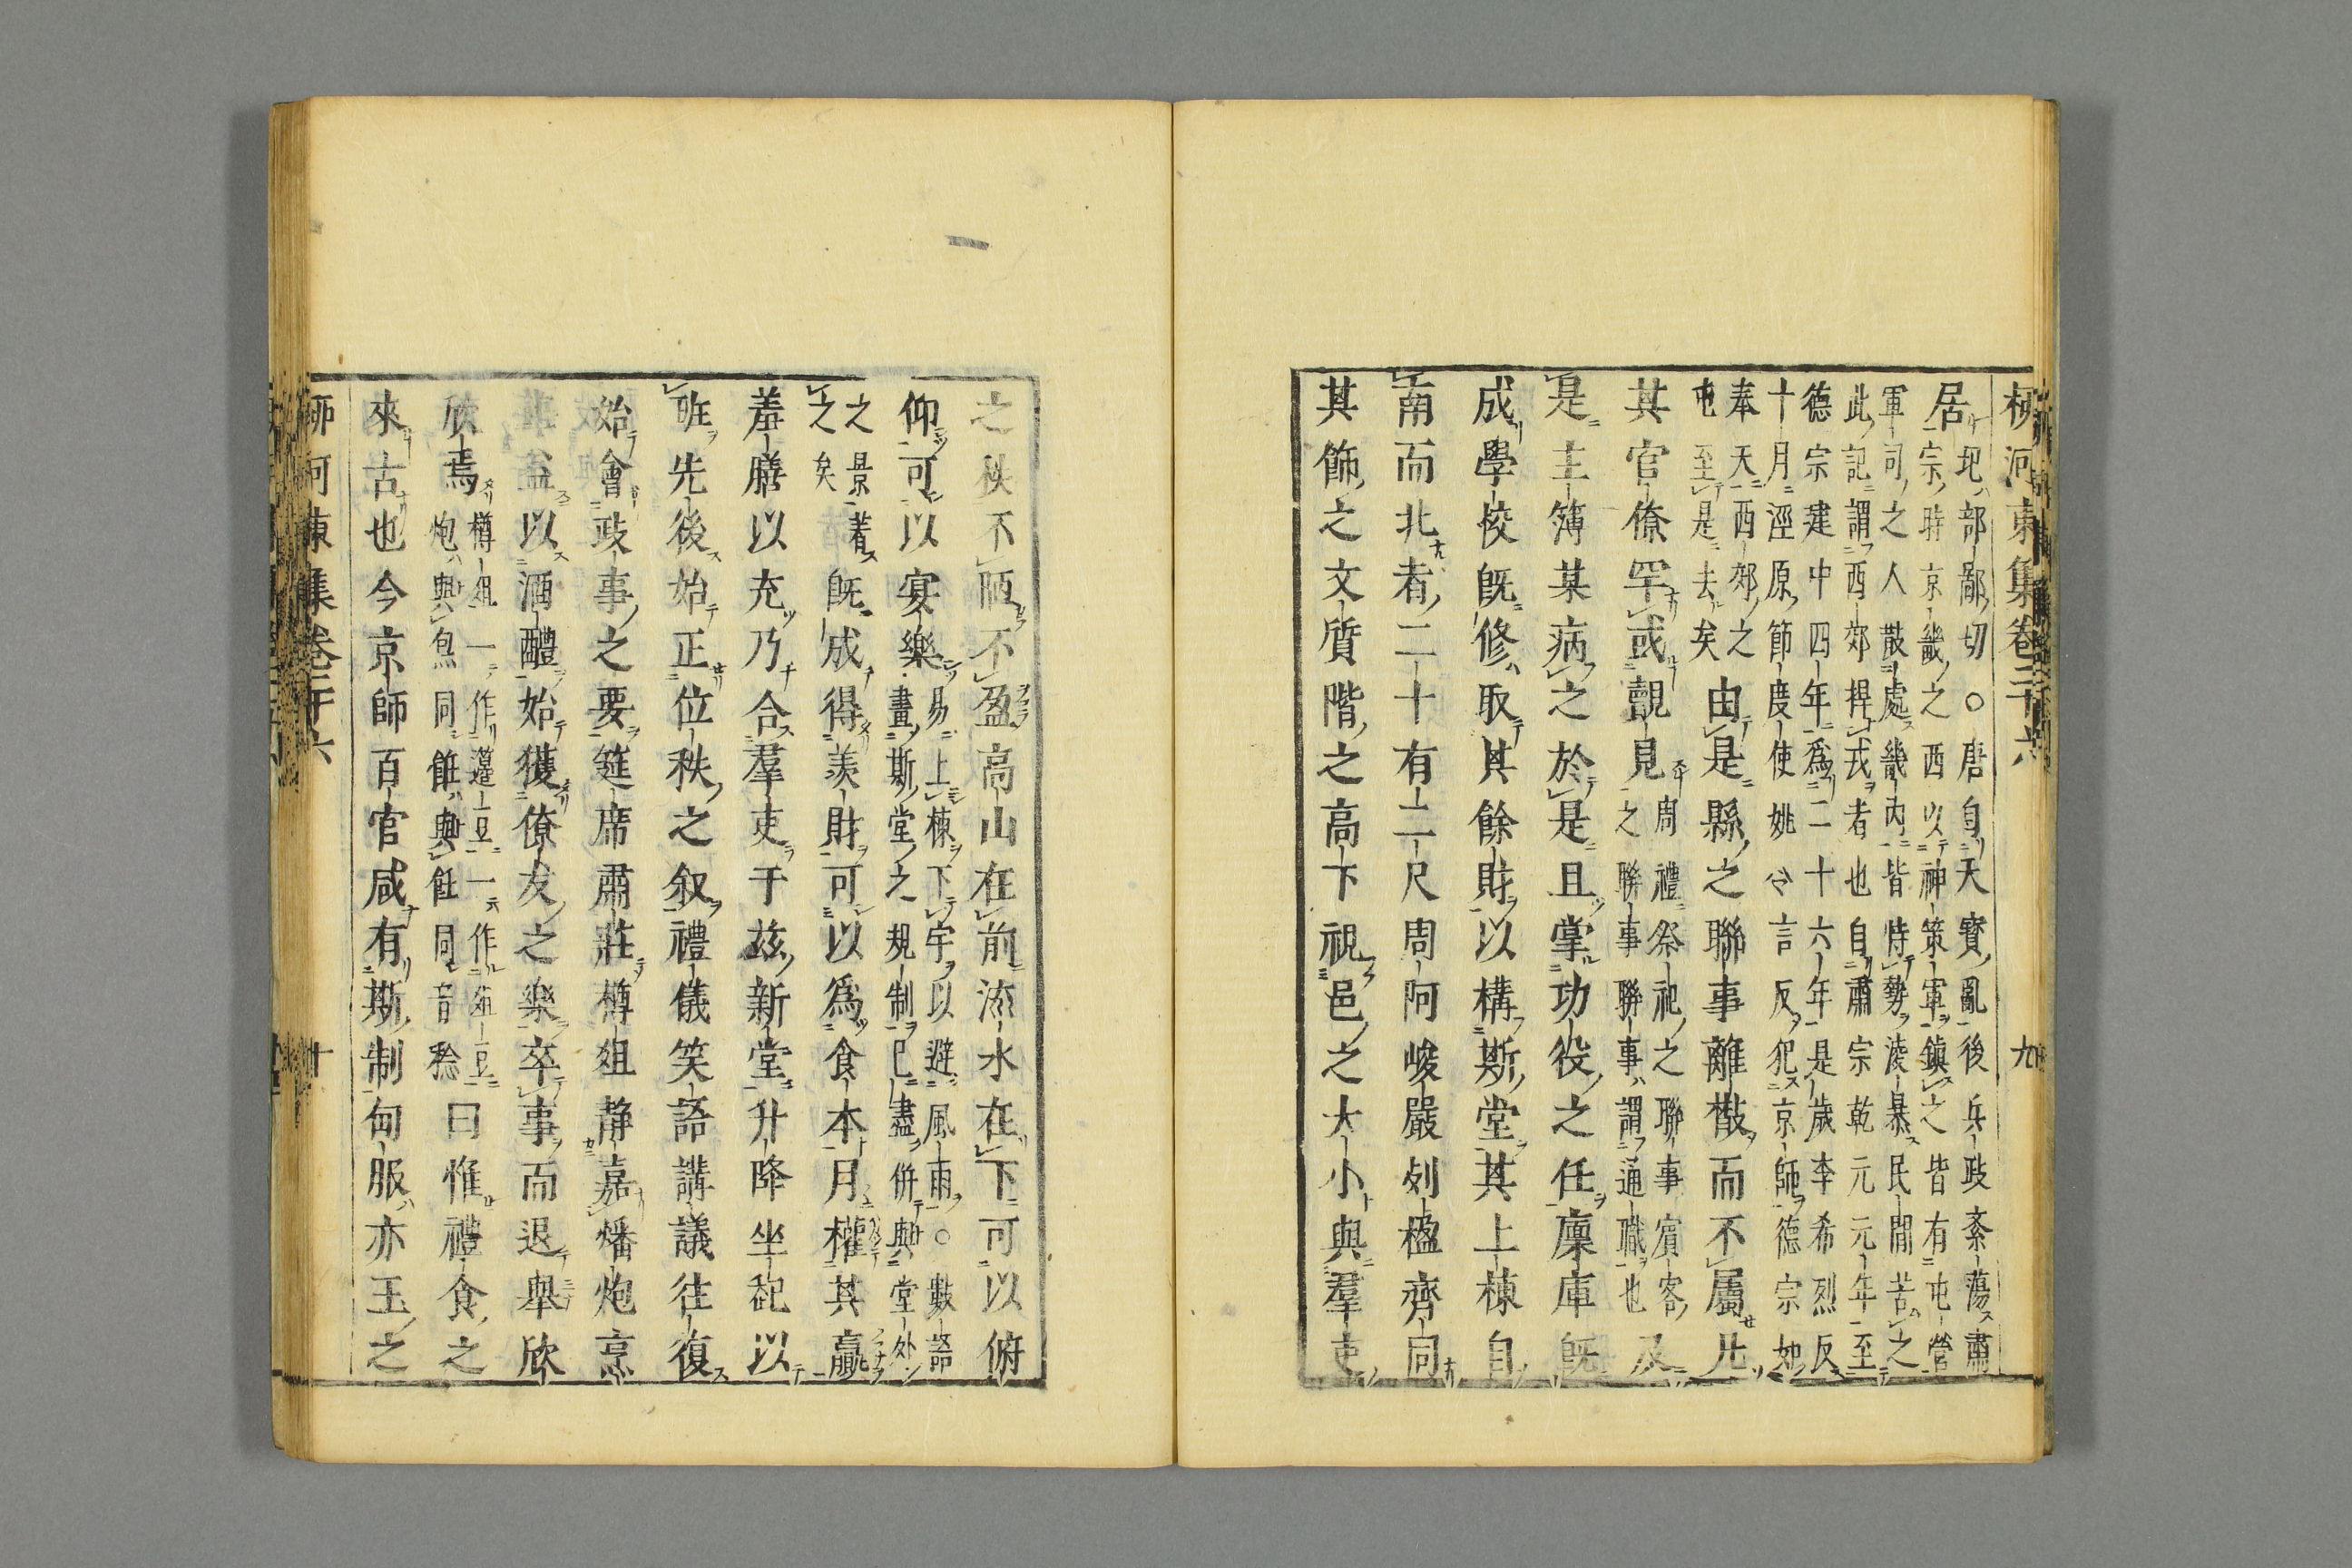 柳河東集卷二十六 九
居
圯部鄙切○唐自天寶亂後兵政紊蕩肅
宗時京畿之西以神策軍鎭之皆有屯營
軍司之人散處畿内皆恃勢凌暴民間苦之
此記謂西郊捍戎者也自肅宗乾元元年至
德宗建中四年爲二十六年是歲李希烈反
十月涇原節度使姚令言反犯京師德宗如
奉天西郊之
屯至是去矣
由是縣之聯事離散而不屬凡
其官僚罕或覿見
周禮祭祀之聯事賓客
之聯事聯事謂通職也
及
是主簿某病之於是且掌功役之任廩庫既
成學校既修取其餘財以構斯堂其上棟自
南而北者二十有二尺周阿峻嚴列楹齊同
其飾之文質階之高下視邑之大小與羣吏
之秩不陋不盈高山在前流水在下可以俯
仰可以宴樂
易上棟下宇以避風雨○數語
畫斯堂之規制已盡併與堂外
之景着
之矣
既成得羨財可以爲食本月權其贏
羞膳以充乃合羣吏于兹新堂升降坐起以
班先後始正位秩之叙禮儀笑語講議往復
始會政事之要筵席肅莊樽俎静嘉燔炮烹
飪益以酒醴始獲僚友之樂卒事而退舉欣
欣焉
樽俎一作籩豆一作俎豆
炮與炰同餁與飪同音稔
曰惟禮食之
來古也今京師百官咸有斯制甸服亦王之
柳河東集卷二十六 十